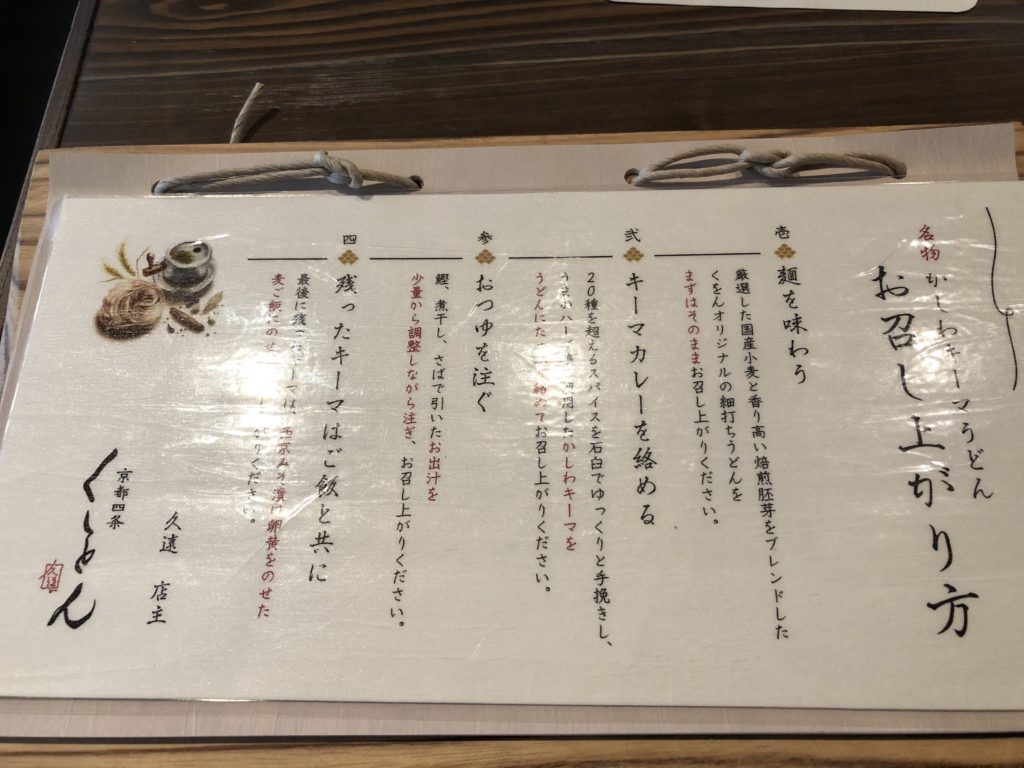 名物 かしわキーマうどん
お召し上がり方
壱
麺を味わう
厳選した国産小麦と香り高い焙煎胚芽をブレンドした
くをんオリジナルの細打ちうどんを
まずはそのままお召し上がりください。
弐
キーマカレーを絡める
20種を超えるスパイスを石臼でゆっくりと手挽きし、
用したかしわキーマを
うどんにた 絡めてお召し上がりください。
参
おつゆを注ぐ
鰹、煮干し、さばで引いたお出汁を
少量から調整しながら注ぎ、お召し上がりください。
四
残ったキーマはご飯と共に
最後に残ったキーマは、西京みそ漬け卵黄をのせた
麦ご飯にのせ がりください。
久遠 店主
京都四条
くをん
久遠